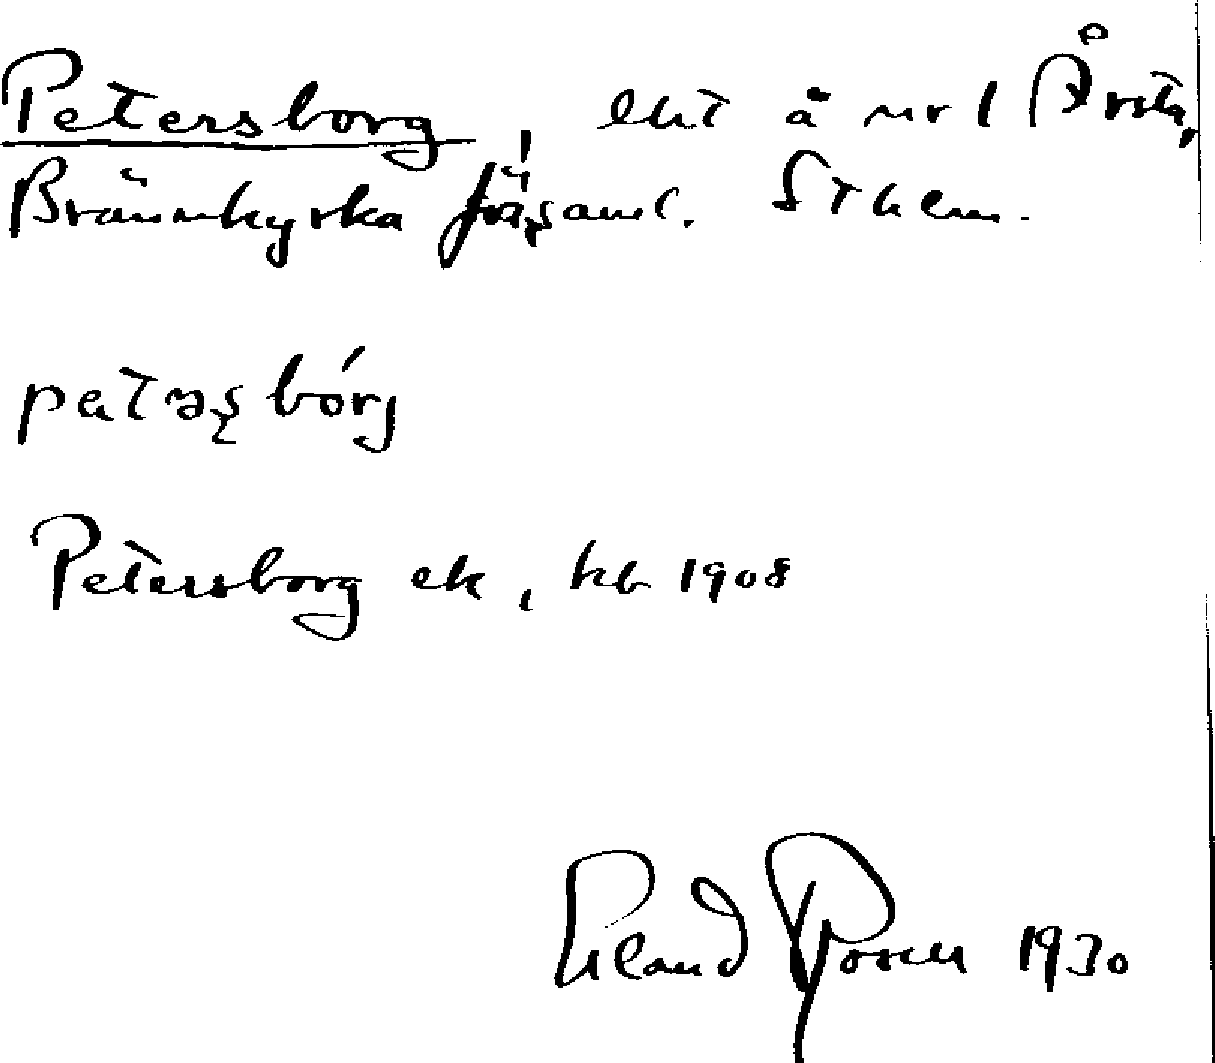 Petersborg, lht å nr 1 Årsta,
Brännkyrka förs.aml. Sthlm.
petəʂbórj
Petersborg ek, hb 1908
Erland Rosell 1930